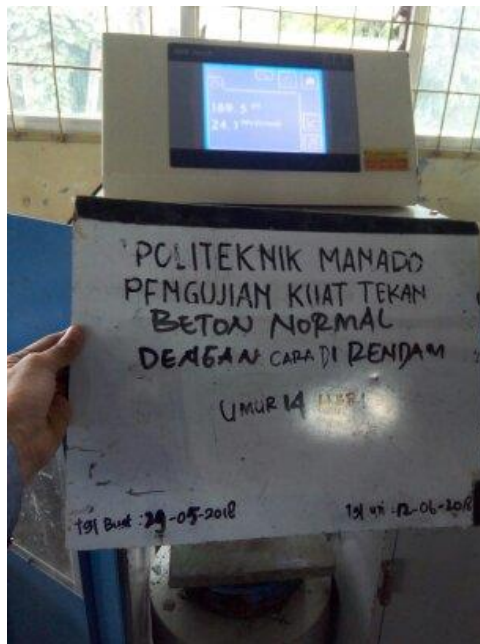 POLITEKNIK MANADO
PENGUJIAN KUAT TEKAN
BETON NORMAL
DENGAN CARA DI RENDAM
UMUR 14 HARI
Tgl Buat : 29-05-2018
Tgl uji : 12-06-2018